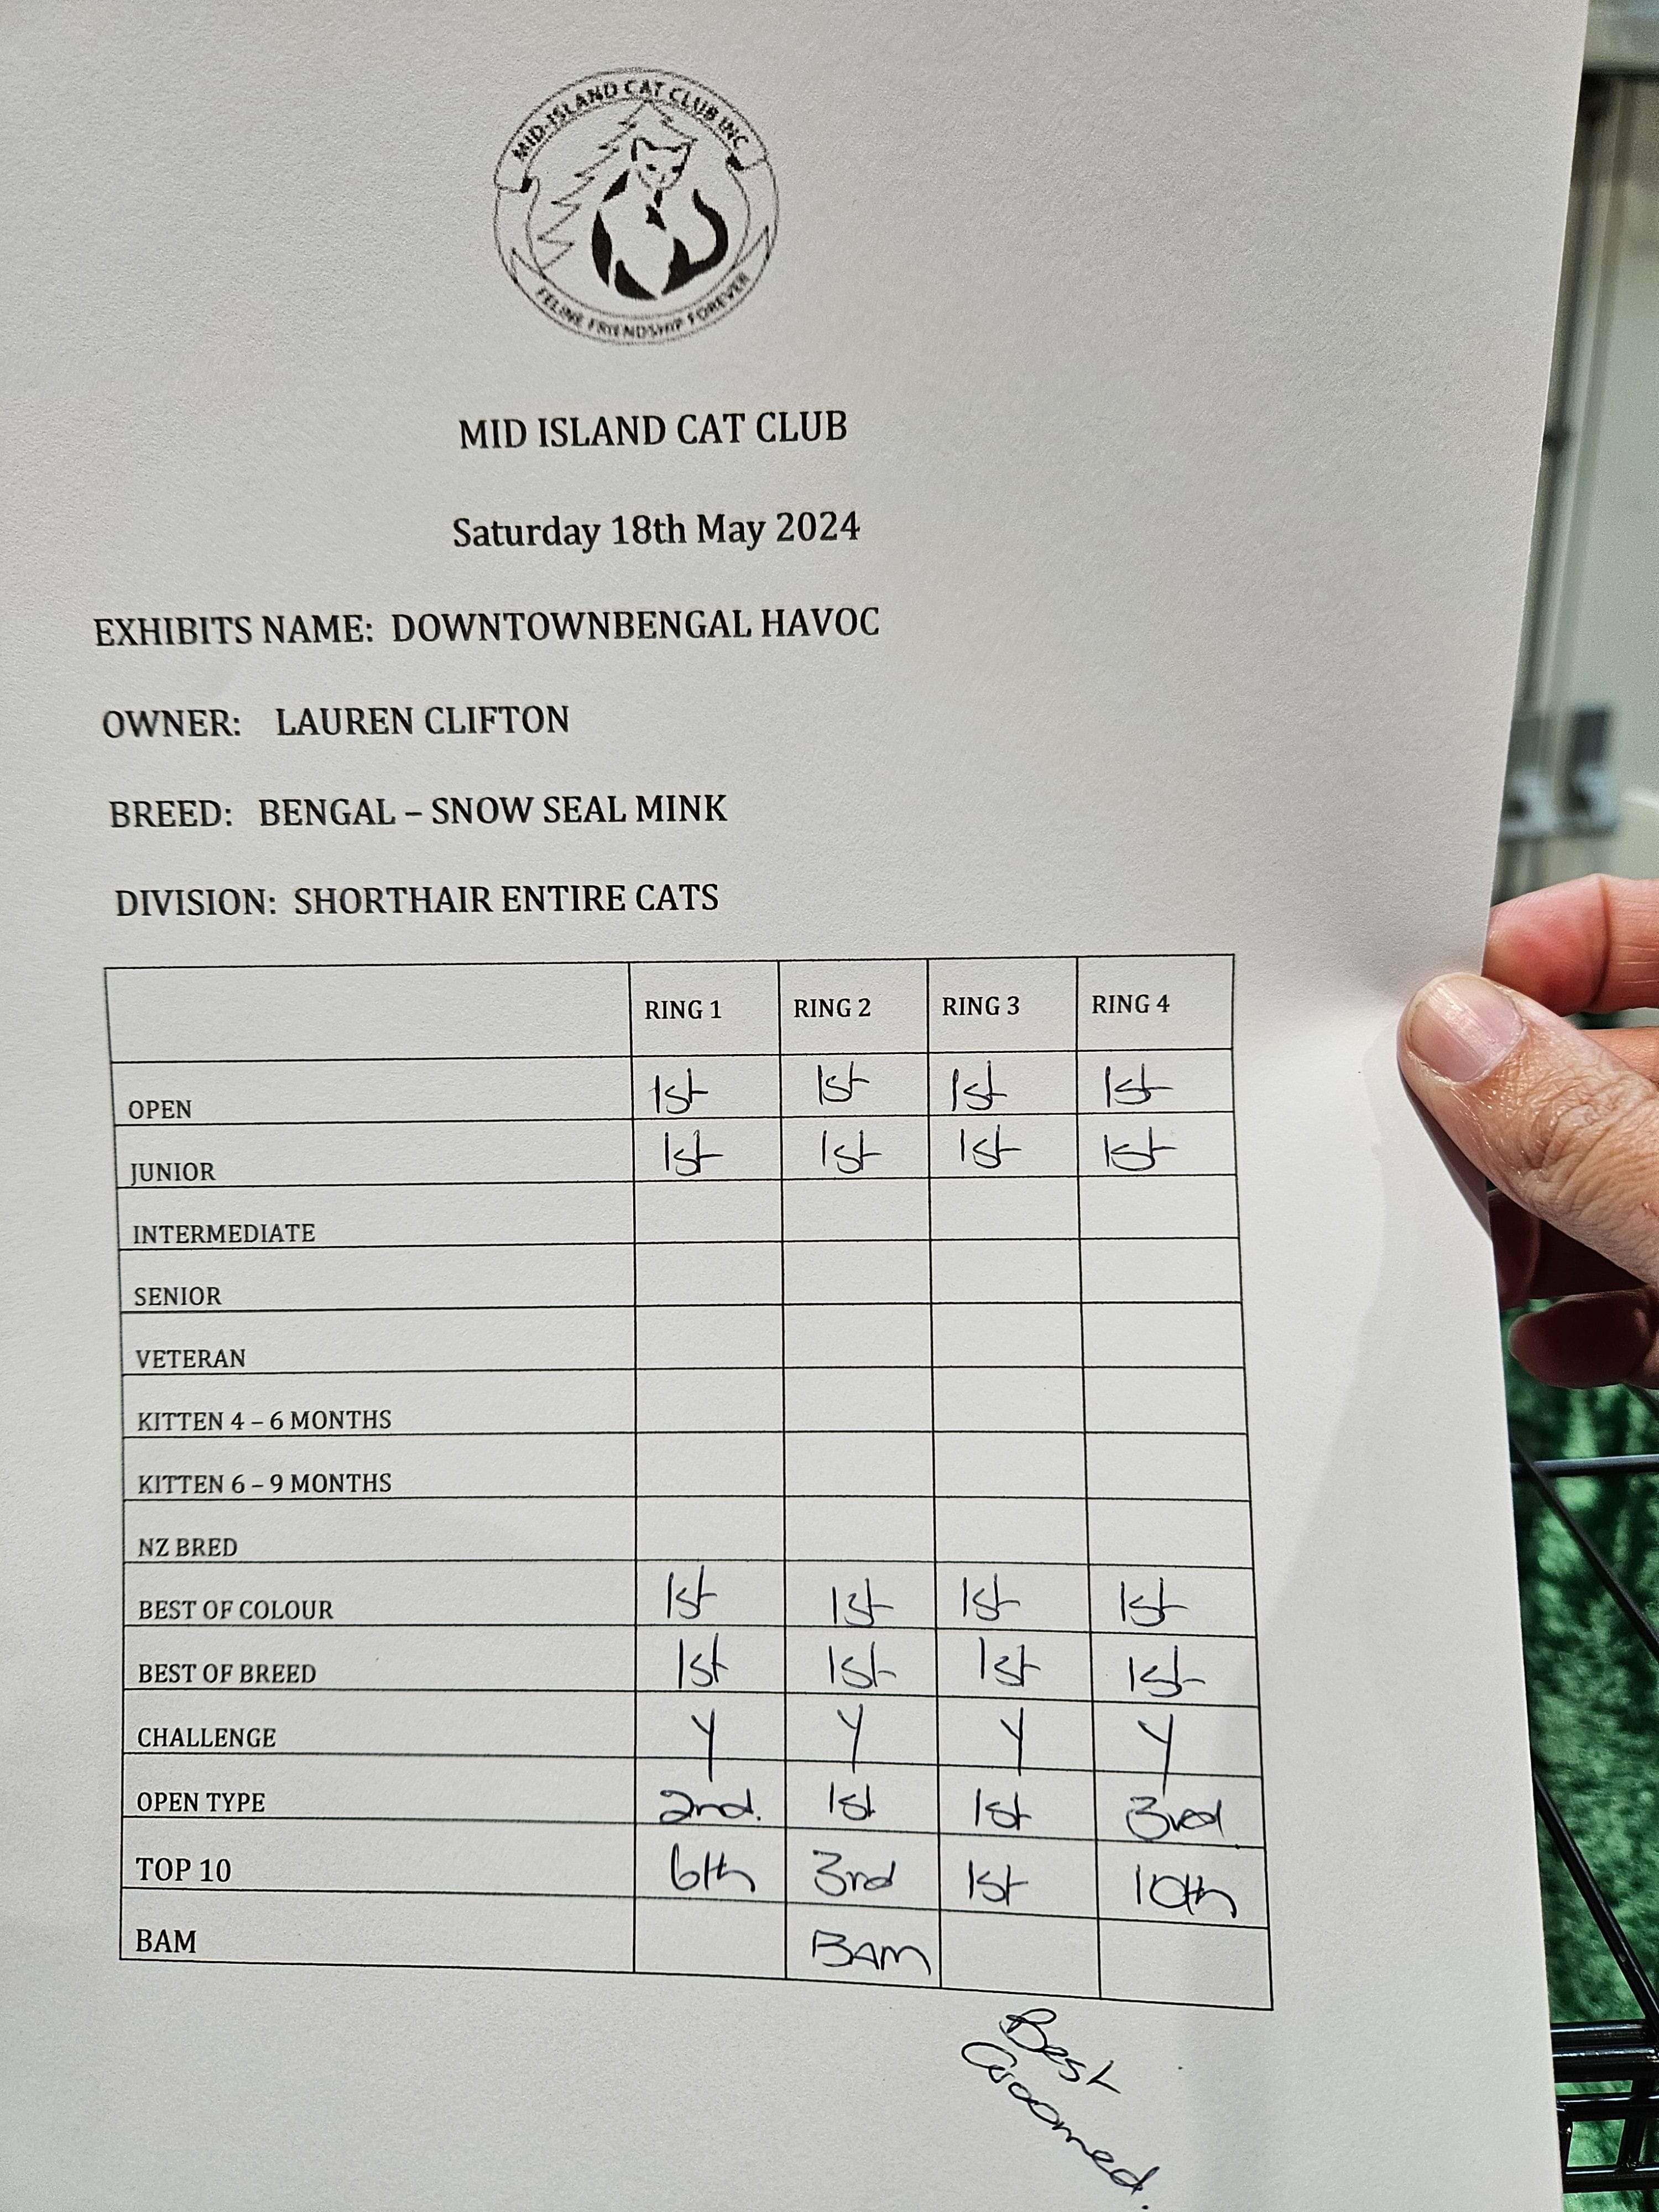 MID-ISLAND CAT CLUB INC
FELINE FRIENDSHIP FOREVER
MID ISLAND CAT CLUB
Saturday 18th May 2024
EXHIBITS NAME: DOWNTOWNBENGAL HAVOC
OWNER: LAUREN CLIFTON
BREED: BENGAL – SNOW SEAL MINK
DIVISION: SHORTHAIR ENTIRE CATS
RING 1 RING 2 RING 3 RING 4
OPEN 1st 1st 1st 1st
JUNIOR 1st 1st 1st 1st
INTERMEDIATE
SENIOR
VETERAN
KITTEN 4 – 6 MONTHS
KITTEN 6 – 9 MONTHS
NZ BRED
BEST OF COLOUR 1st 1st 1st 1st
BEST OF BREED 1st 1st 1st 1st
CHALLENGE Y Y Y Y
OPEN TYPE 2nd. 1st 1st 3rd
TOP 10 6th 3rd 1st 10th
BAM BAM
Best
Groomed.